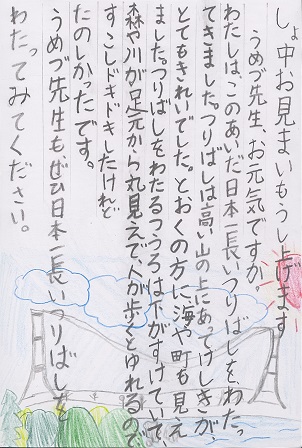 しょ中お見まいもうし上げます
うめづ先生、お元気ですか
わたしは、このあいだ日本一長いつりばしをわたっ
てきました。つりばしは高い山の上にあってけしきが、
とてもきれいでした。とおくの方に海や町も見え
ました。つりばしをわたるつうろは下がすけていて
森や川が足元から丸見えで、人が歩くとゆれるので
すこしドキドキしたけれど
たのしかったです。
うめづ先生もぜひ日本一長いつりばしを
わたってみてください。